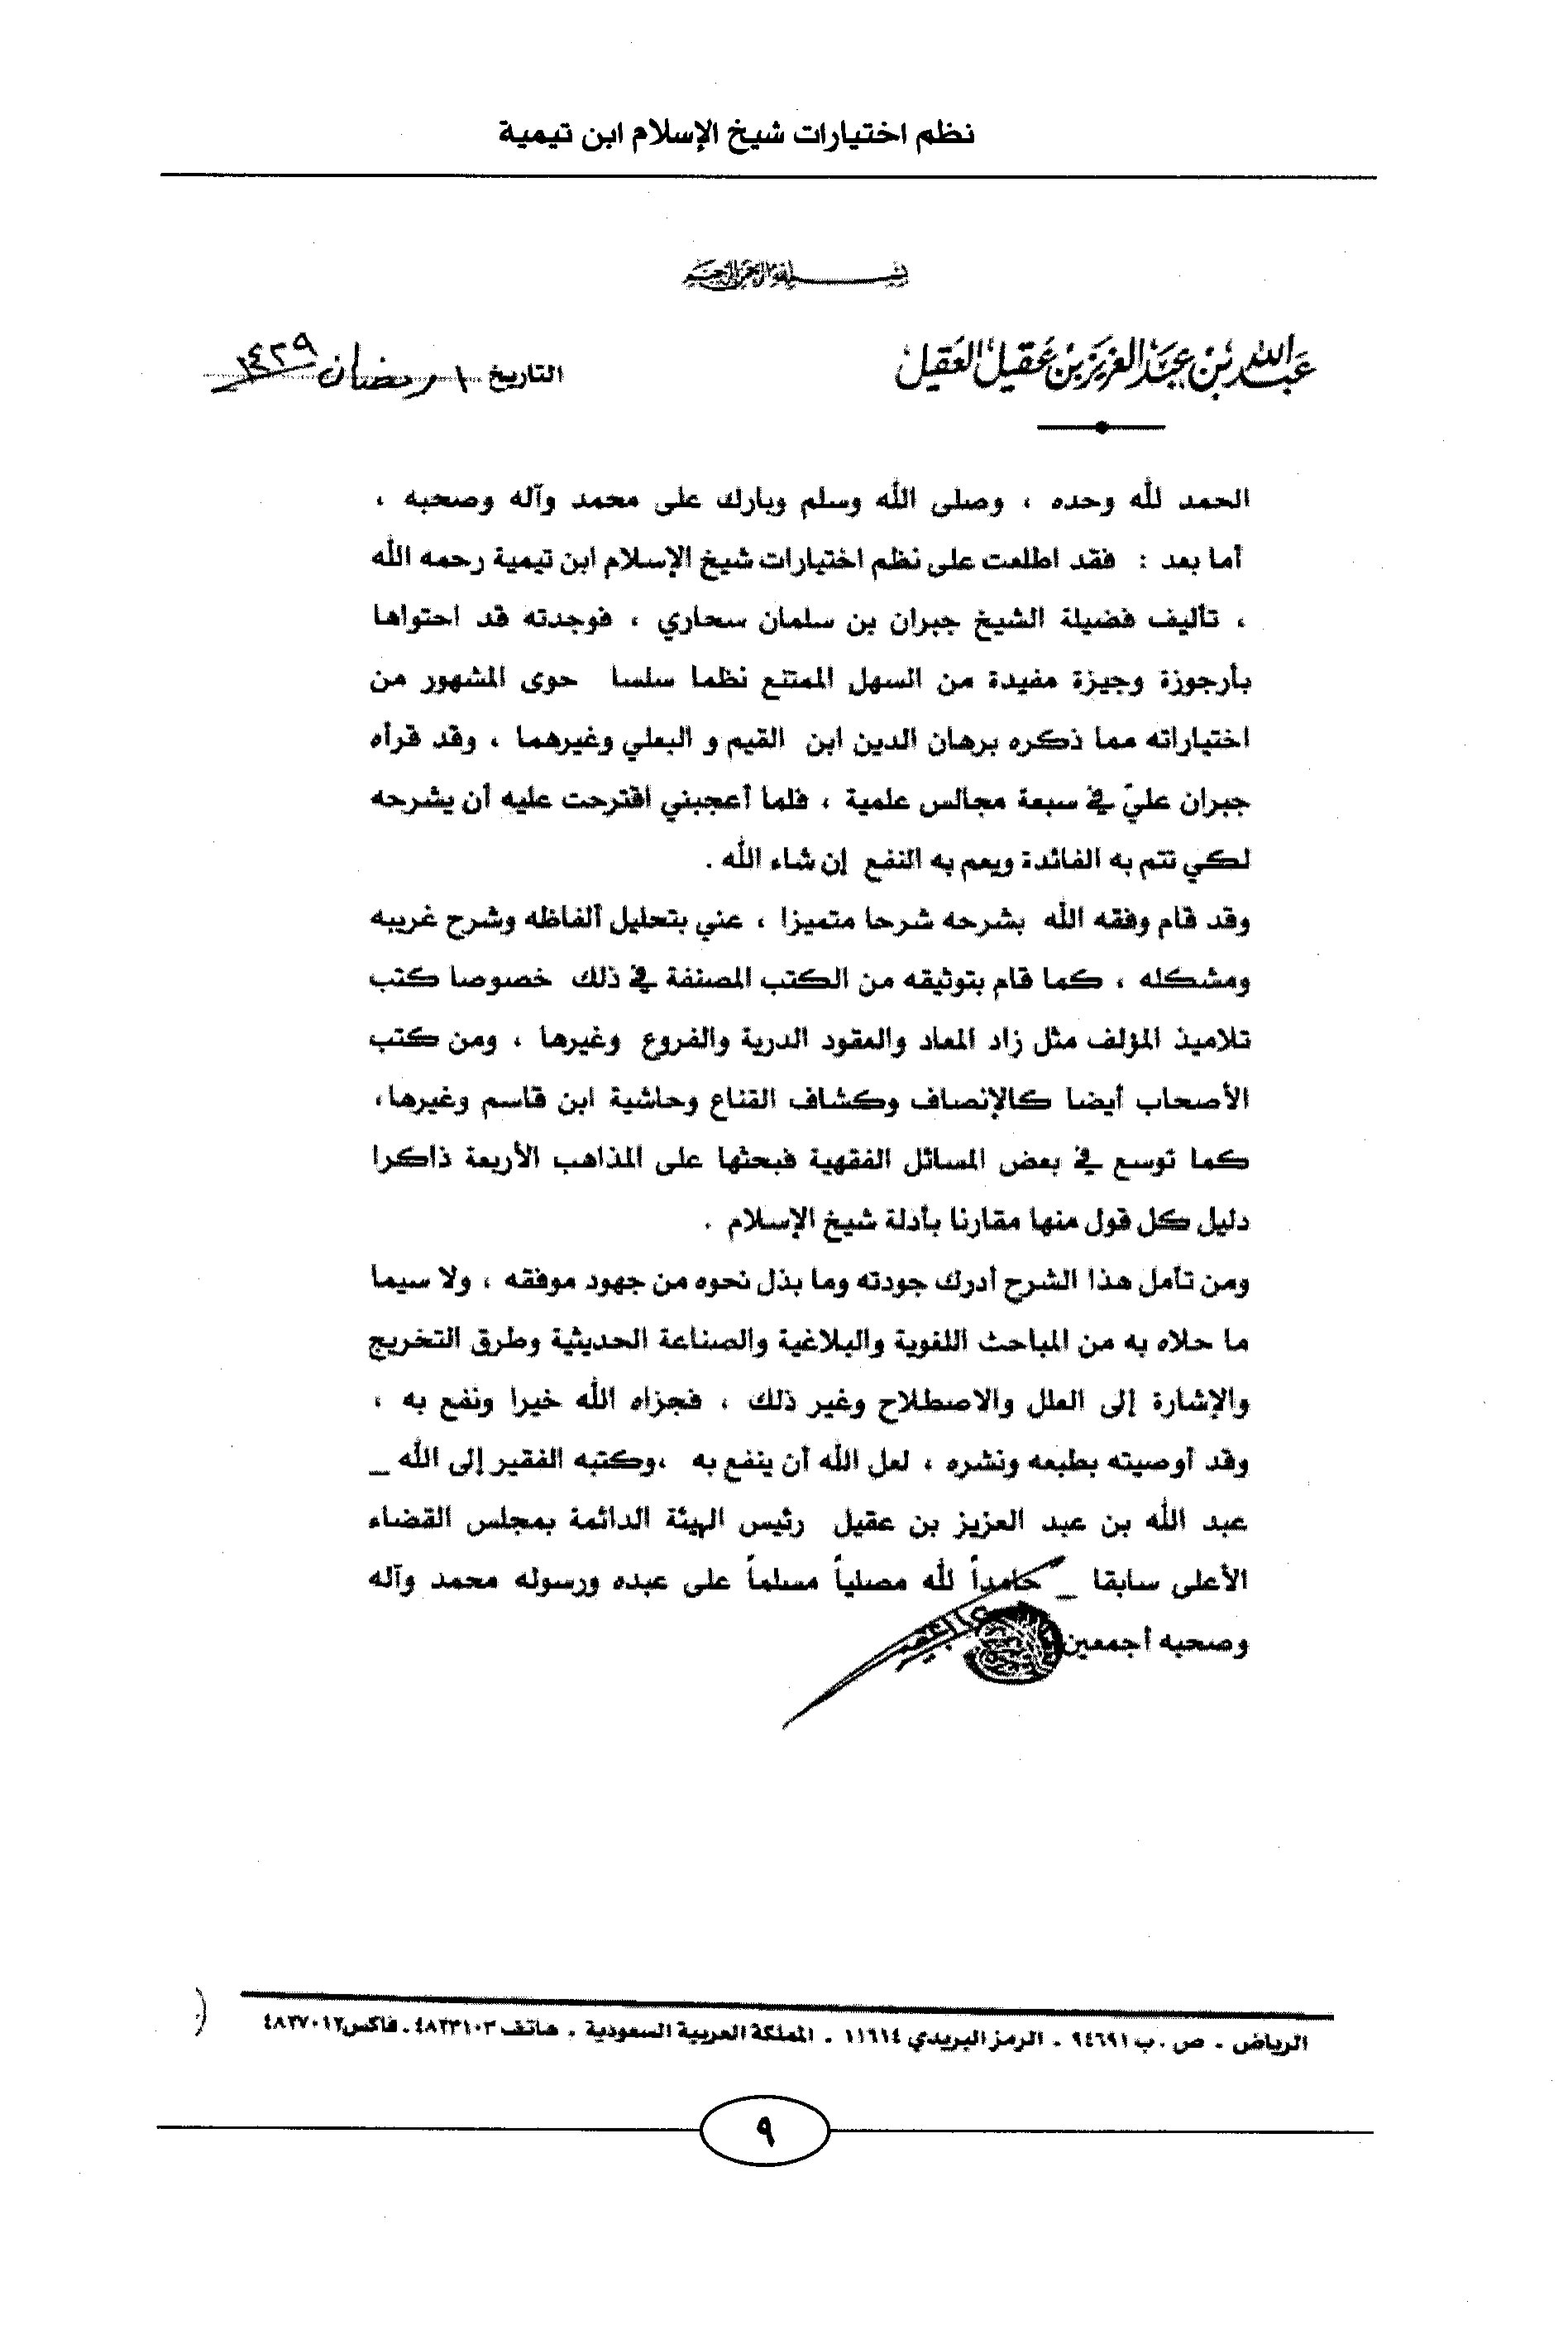 نظم اختيارات شيخ الإسلام ابن تيمية
بسم الله الرحمن الرحيم
عبد الله بن عبد العزيز بن عقيل العقيل
التاريخ ١ رمضان ١٤٢٩
الحمد لله وحده ، وصلى الله وسلم وبارك على محمد وآله وصحبه ،
أما بعد : فقد اطلعت على نظم اختيارات شيخ الإسلام ابن تيمية رحمه الله
، تأليف فضيلة الشيخ جبران بن سلمان سحاري ، فوجدته قد احتواها
بأرجوزة وجيزة مفيدة من السهل الممتنع نظما سلسا حوى المشهور من
اختياراته مما ذكره برهان الدين ابن القيم و البعلي وغيرهما ، وقد قرأه
جبران عليّ في سبعة مجالس علمية ، فلما أعجبني اقترحت عليه أن يشرحه
لكي تتم به الفائدة ويعم به النفع إن شاء الله .
وقد قام وفقه الله بشرحه شرحا متميزا ، عني بتحليل ألفاظه وشرح غريبه
ومشكله ، كما قام بتوثيقه من الكتب المصنفة في ذلك خصوصا كتب
تلاميذ المؤلف مثل زاد المعاد والعقود الدرية والفروع وغيرها ، ومن كتب
الأصحاب أيضا كالإنصاف وكشاف القناع وحاشية ابن قاسم وغيرها،
كما توسع في بعض المسائل الفقهية فبحثها على المذاهب الأربعة ذاكرا
دليل كل قول منها مقارنا بأدلة شيخ الإسلام .
ومن تأمل هذا الشرح أدرك جودته وما بذل نحوه من جهود موفقه ، ولا سيما
ما حلاه به من المباحث اللغوية والبلاغية والصناعة الحديثية وطرق التخريج
والإشارة إلى العلل والاصطلاح وغير ذلك ، فجزاه الله خيرا ونفع به ،
وقد أوصيته بطبعه ونشره ، لعل الله أن ينفع به ،وكتبه الفقير إلى الله _
عبد الله بن عبد العزيز بن عقيل رئيس الهيئة الدائمة بمجلس القضاء
الأعلى سابقا _ حامداً لله مصلياً مسلماً على عبده ورسوله محمد وآله
وصحبه أجمعين
الرياض . ص . ب ٩٤٦٩١ . الرمز البريدي ١١٦١٤ . المملكة العربية السعودية . هاتف ٤٨٢٣١٠٣ . فاكس ٤٨٢٧٠١٢
٩